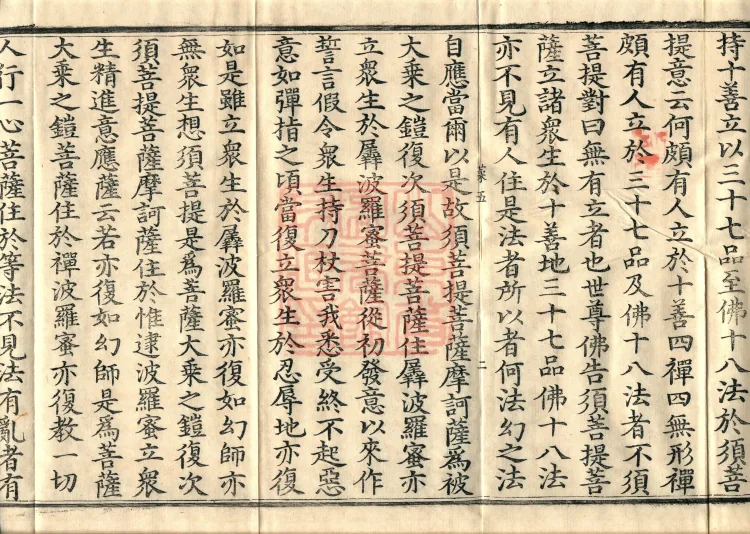 持十善立以三十七品至佛十八法於須菩
提意云何頗有人立於十善四禪四無形禪
頗有人立於三十七品及佛十八法者不須
菩提對曰無有立者也世尊佛告須菩提菩
薩立諸衆生於十善地三十七品佛十八法
亦不見有人住是法者所以者何法幻之法
菜五 二
自應當爾以是故須菩提菩薩摩訶薩為被
大乘之鎧復次須菩提菩薩住羼波羅蜜亦
立衆生於羼波羅蜜菩薩從初發意以來作
誓言假令衆生持刀杖害我悉受終不起惡
意如彈指之頃當復立衆生於忍辱地亦復
如是雖立衆生於羼波羅蜜亦復如幻師亦
無衆生想須菩提是為菩薩大乘之鎧復次
須菩提菩薩摩訶薩住於惟逮波羅蜜立衆
生精進意應薩云若亦復如幻師是為菩薩
大乘之鎧菩薩住於禪波羅蜜亦復教一切
人行一心菩薩住於等法不見法有亂者有